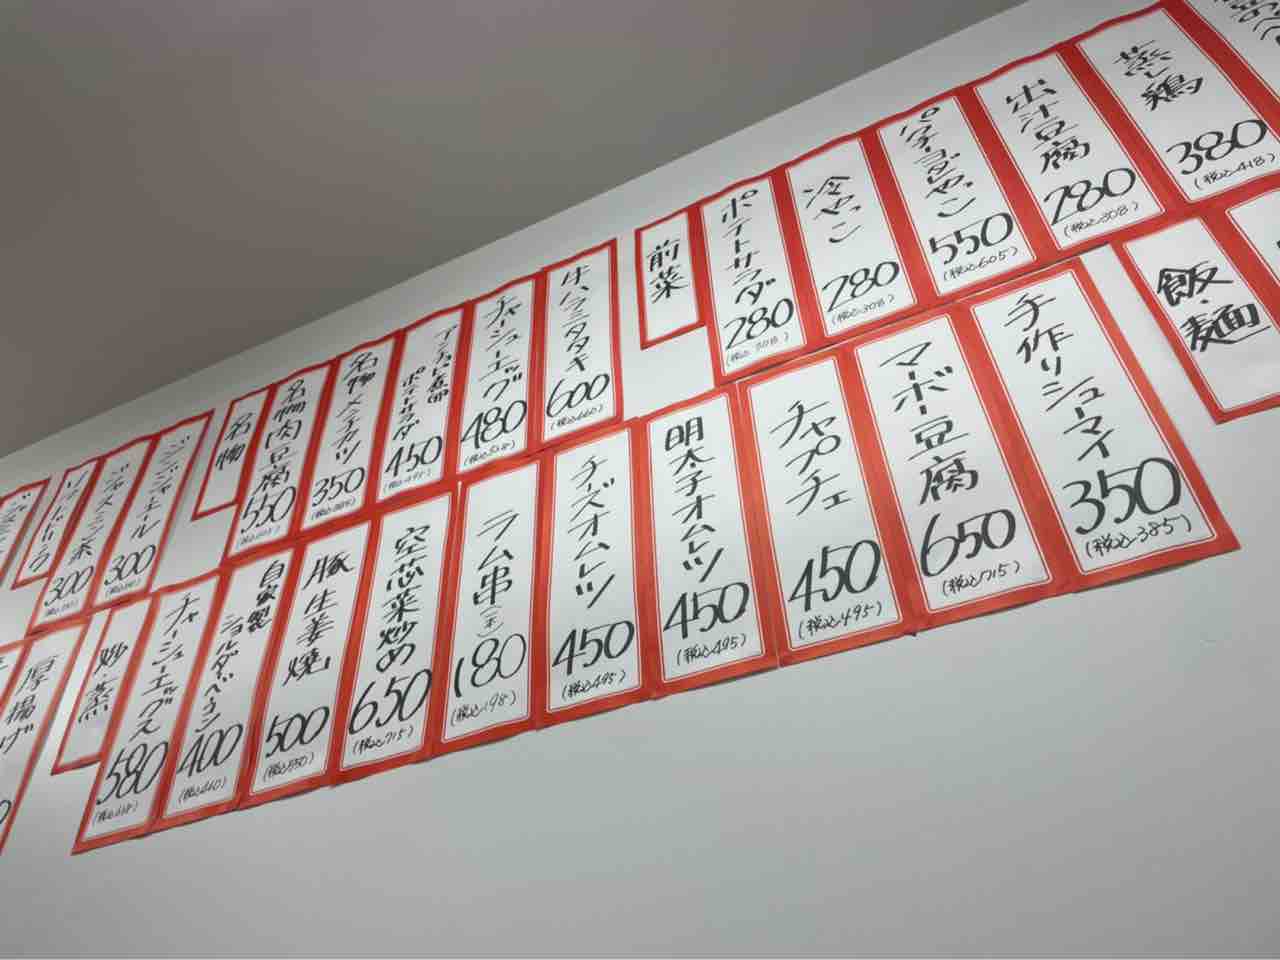 蒸し鶏
380
(税込418)
出汁豆腐
280
(税込308)
550
(税込605)
冷やっこ
280
(税込308)
ポテトサラダ
280
(税込308)
前菜
牛ハラミタタキ
600
(税込660)
チャーシューエッグ
480
(税込528)
ポテトサラダ
450
(税込495)
名物
350
名物肉豆腐
550
(税込605)
名物
ジンジャーエール
300
ジャスミン茶
300
ソフトドリンク
飯・麺
手作りシューマイ
350
(税込385)
マーボー豆腐
650
(税込715)
チャプチェ
450
(税込495)
明太子オムレツ
450
(税込495)
チーズオムレツ
450
(税込495)
ラム串(1本)
180
(税込198)
空芯菜炒め
650
(税込715)
豚生姜焼
500
(税込550)
自家製
ショルダーベーコン
400
(税込440)
チャーシューエッグス
580
(税込638)
炒・蒸
厚揚げ